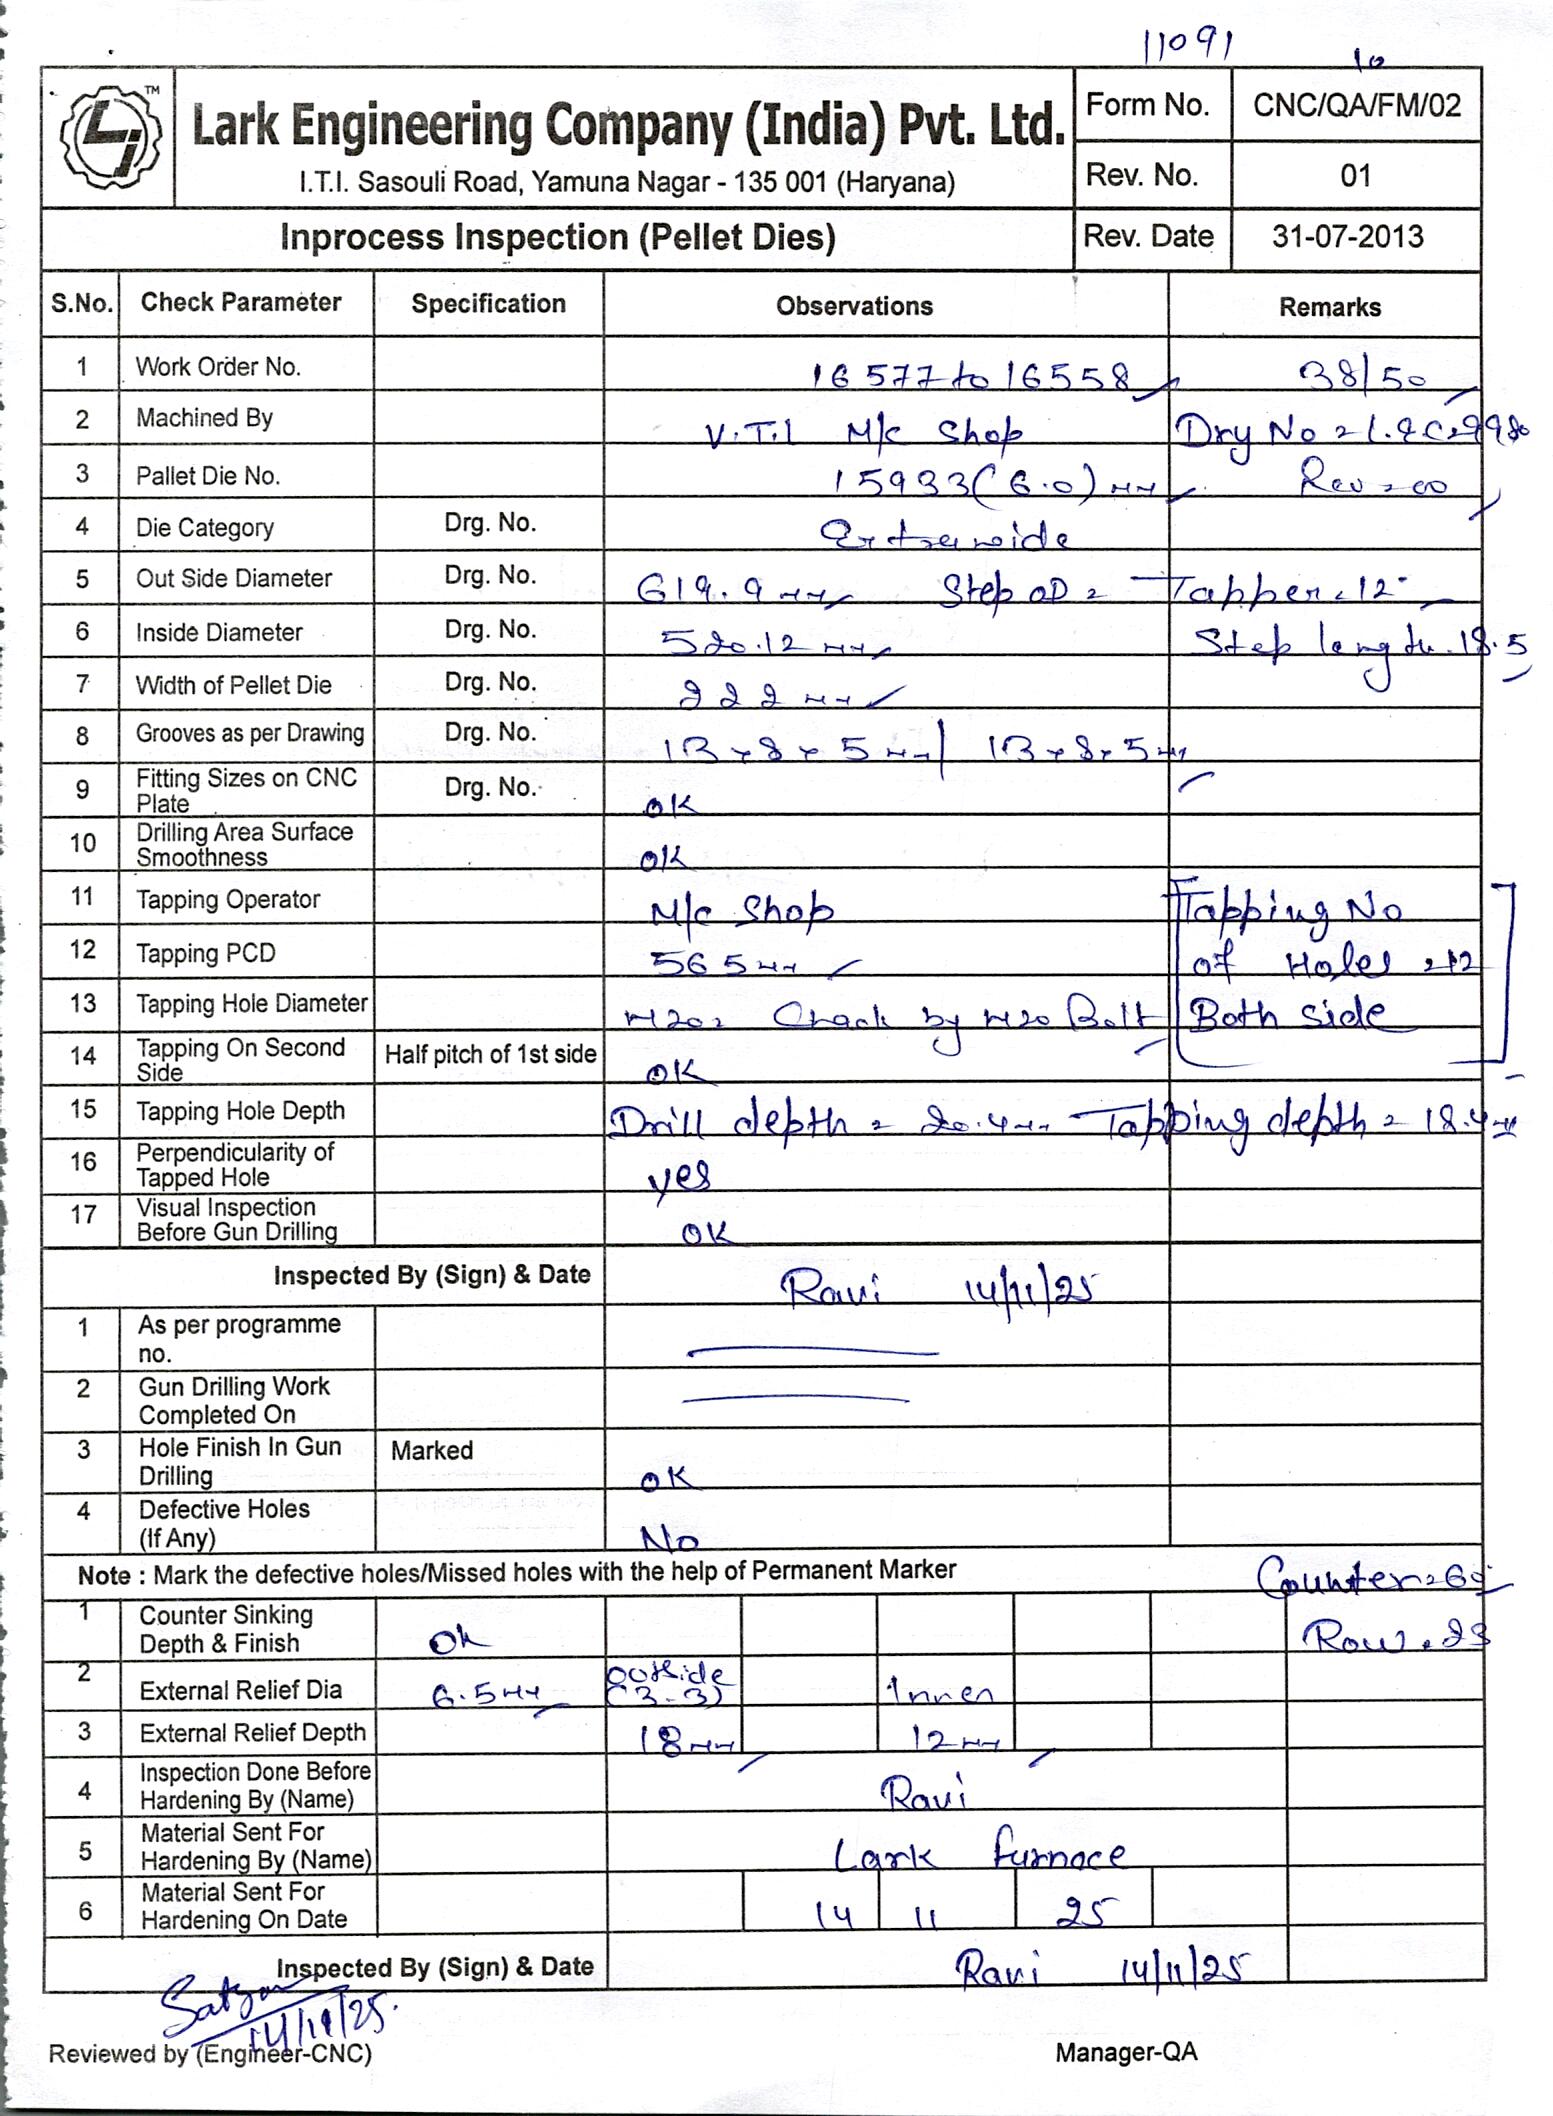 11091 10
TM
Lark Engineering Company (India) Pvt. Ltd.
I.T.I. Sasouli Road, Yamuna Nagar - 135 001 (Haryana)
Form No. CNC/QA/FM/02
Rev. No. 01
Inprocess Inspection (Pellet Dies) Rev. Date 31-07-2013
S.No. Check Parameter Specification Observations Remarks
1 Work Order No. 16577 to 16558 38/50
2 Machined By V.T.1 M/c Shop Dry No =
3 Pallet Die No. 15933 (6.0) mm Rev = 00
4 Die Category Drg. No.
5 Out Side Diameter Drg. No. 619.9 mm Step OD = Tapper = 12°
6 Inside Diameter Drg. No. 520.12 mm Step length = 18.5
7 Width of Pellet Die Drg. No. 222 mm
8 Grooves as per Drawing Drg. No. 13 x 8 x 5 mm | 13 x 8 x 5 mm
9 Fitting Sizes on CNC Plate Drg. No. OK
10 Drilling Area Surface Smoothness OK
11 Tapping Operator M/c Shop Tapping No
12 Tapping PCD 565 mm of Holes = 12
13 Tapping Hole Diameter M20 = Check by M20 Bolt Both side
14 Tapping On Second Side Half pitch of 1st side OK
15 Tapping Hole Depth Drill depth = 20.4 mm Tapping depth = 18.4 mm
16 Perpendicularity of Tapped Hole yes
17 Visual Inspection Before Gun Drilling OK
Inspected By (Sign) & Date Ravi 14/11/25
1 As per programme no.
2 Gun Drilling Work Completed On
3 Hole Finish In Gun Drilling Marked OK
4 Defective Holes (If Any) No
Note : Mark the defective holes/Missed holes with the help of Permanent Marker Counter = 60°
1 Counter Sinking Depth & Finish Ok Row = 23
2 External Relief Dia 6.5 mm outside (3-3) Inner
3 External Relief Depth 18 mm 12 mm
4 Inspection Done Before Hardening By (Name) Ravi
5 Material Sent For Hardening By (Name) Lark furnace
6 Material Sent For Hardening On Date 14 11 25
Inspected By (Sign) & Date Ravi 14/11/25
14/11/25.
Reviewed by (Engineer-CNC) Manager-QA